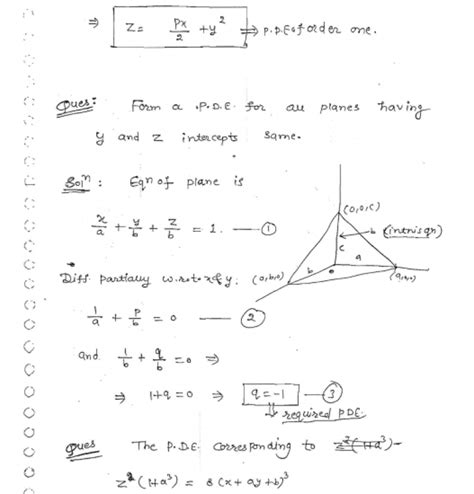 ⇒ Z = px/2 + y² ⇒ P.D.E of order one.
Ques: Form a P.D.E. for all planes having
y and z intercepts same.
Solⁿ: Eqⁿ of plane is
x/a + y/b + z/b = 1. — ①
(0,0,c)
b (in this qn)
c
a
b
o
(0,b,0)
(a,0,0)
Diff. partially w.r.to x & y:
1/a + p/b = 0 — ②
and 1/b + q/b = 0 ⇒
⇒ 1+q = 0 ⇒ q = -1 — ③
⇒ required PDE.
Ques The P.D.E. corresponding to z²(1+a³)-
z²(1+a³) = 8(x+ay+b)³